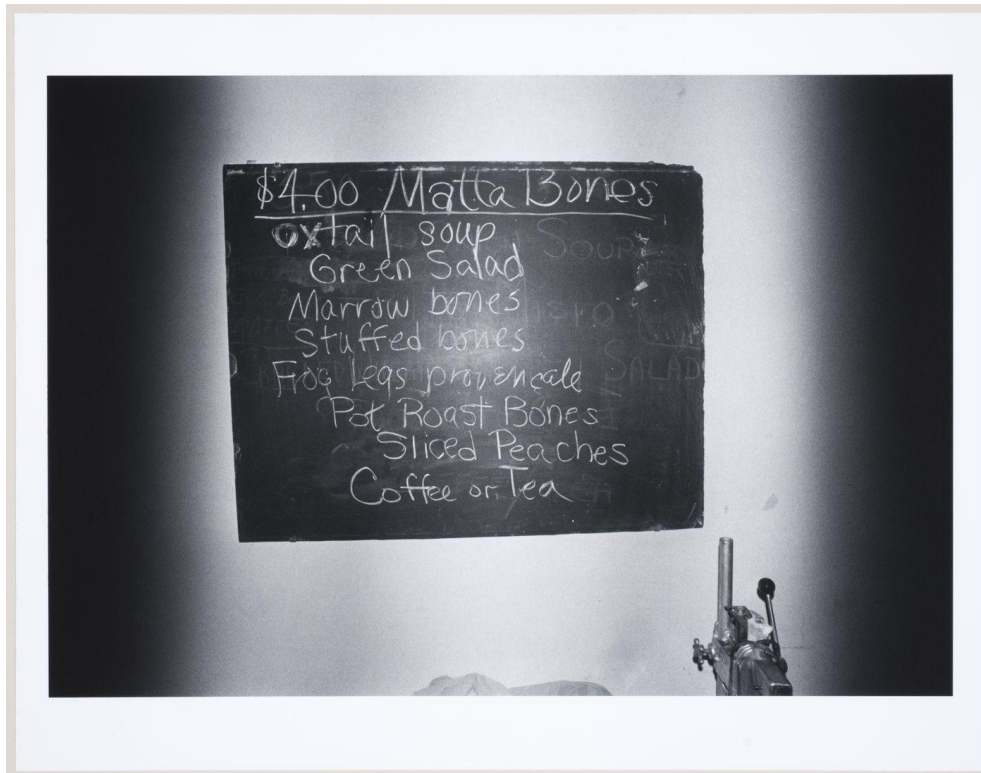 $4.00 Matta Bones
oxtail soup
Green Salad
Marrow bones
Stuffed bones
Frog Legs provençale
Pot Roast Bones
Sliced Peaches
Coffee or Tea
SOUP
SALAD